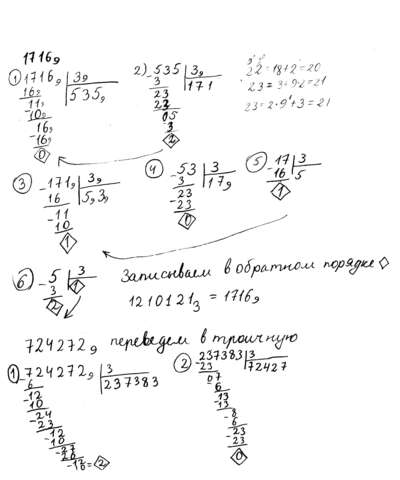 1716₉
① 1716₉ | 3₉
535₉
16₉
11₉
-10₉
16₉
-16₉
0
2) -535 | 3₉
171
3
23
23
05
3
2
22 = 18+2 = 20
23 = 3·9-2 = 21
23 = 2·9¹+3 = 21
③ -171₉ | 3₉
16
-11
10
1
④ -53 | 3
17₉
3
23
-23
0
⑤ -17 | 3
16 5
1
⑥ -5 | 3
3 1
2
Записываем в обратном порядке ◇
1210121₃ = 1716₉
724272₉ переведем в троичную
① -724272₉ | 3
237383
6
-12
10
-24
-23
-12
10
-27
26
② 237383 | 3
72427
-23
07
6
-13
-13
-8
6
-23
-23
0